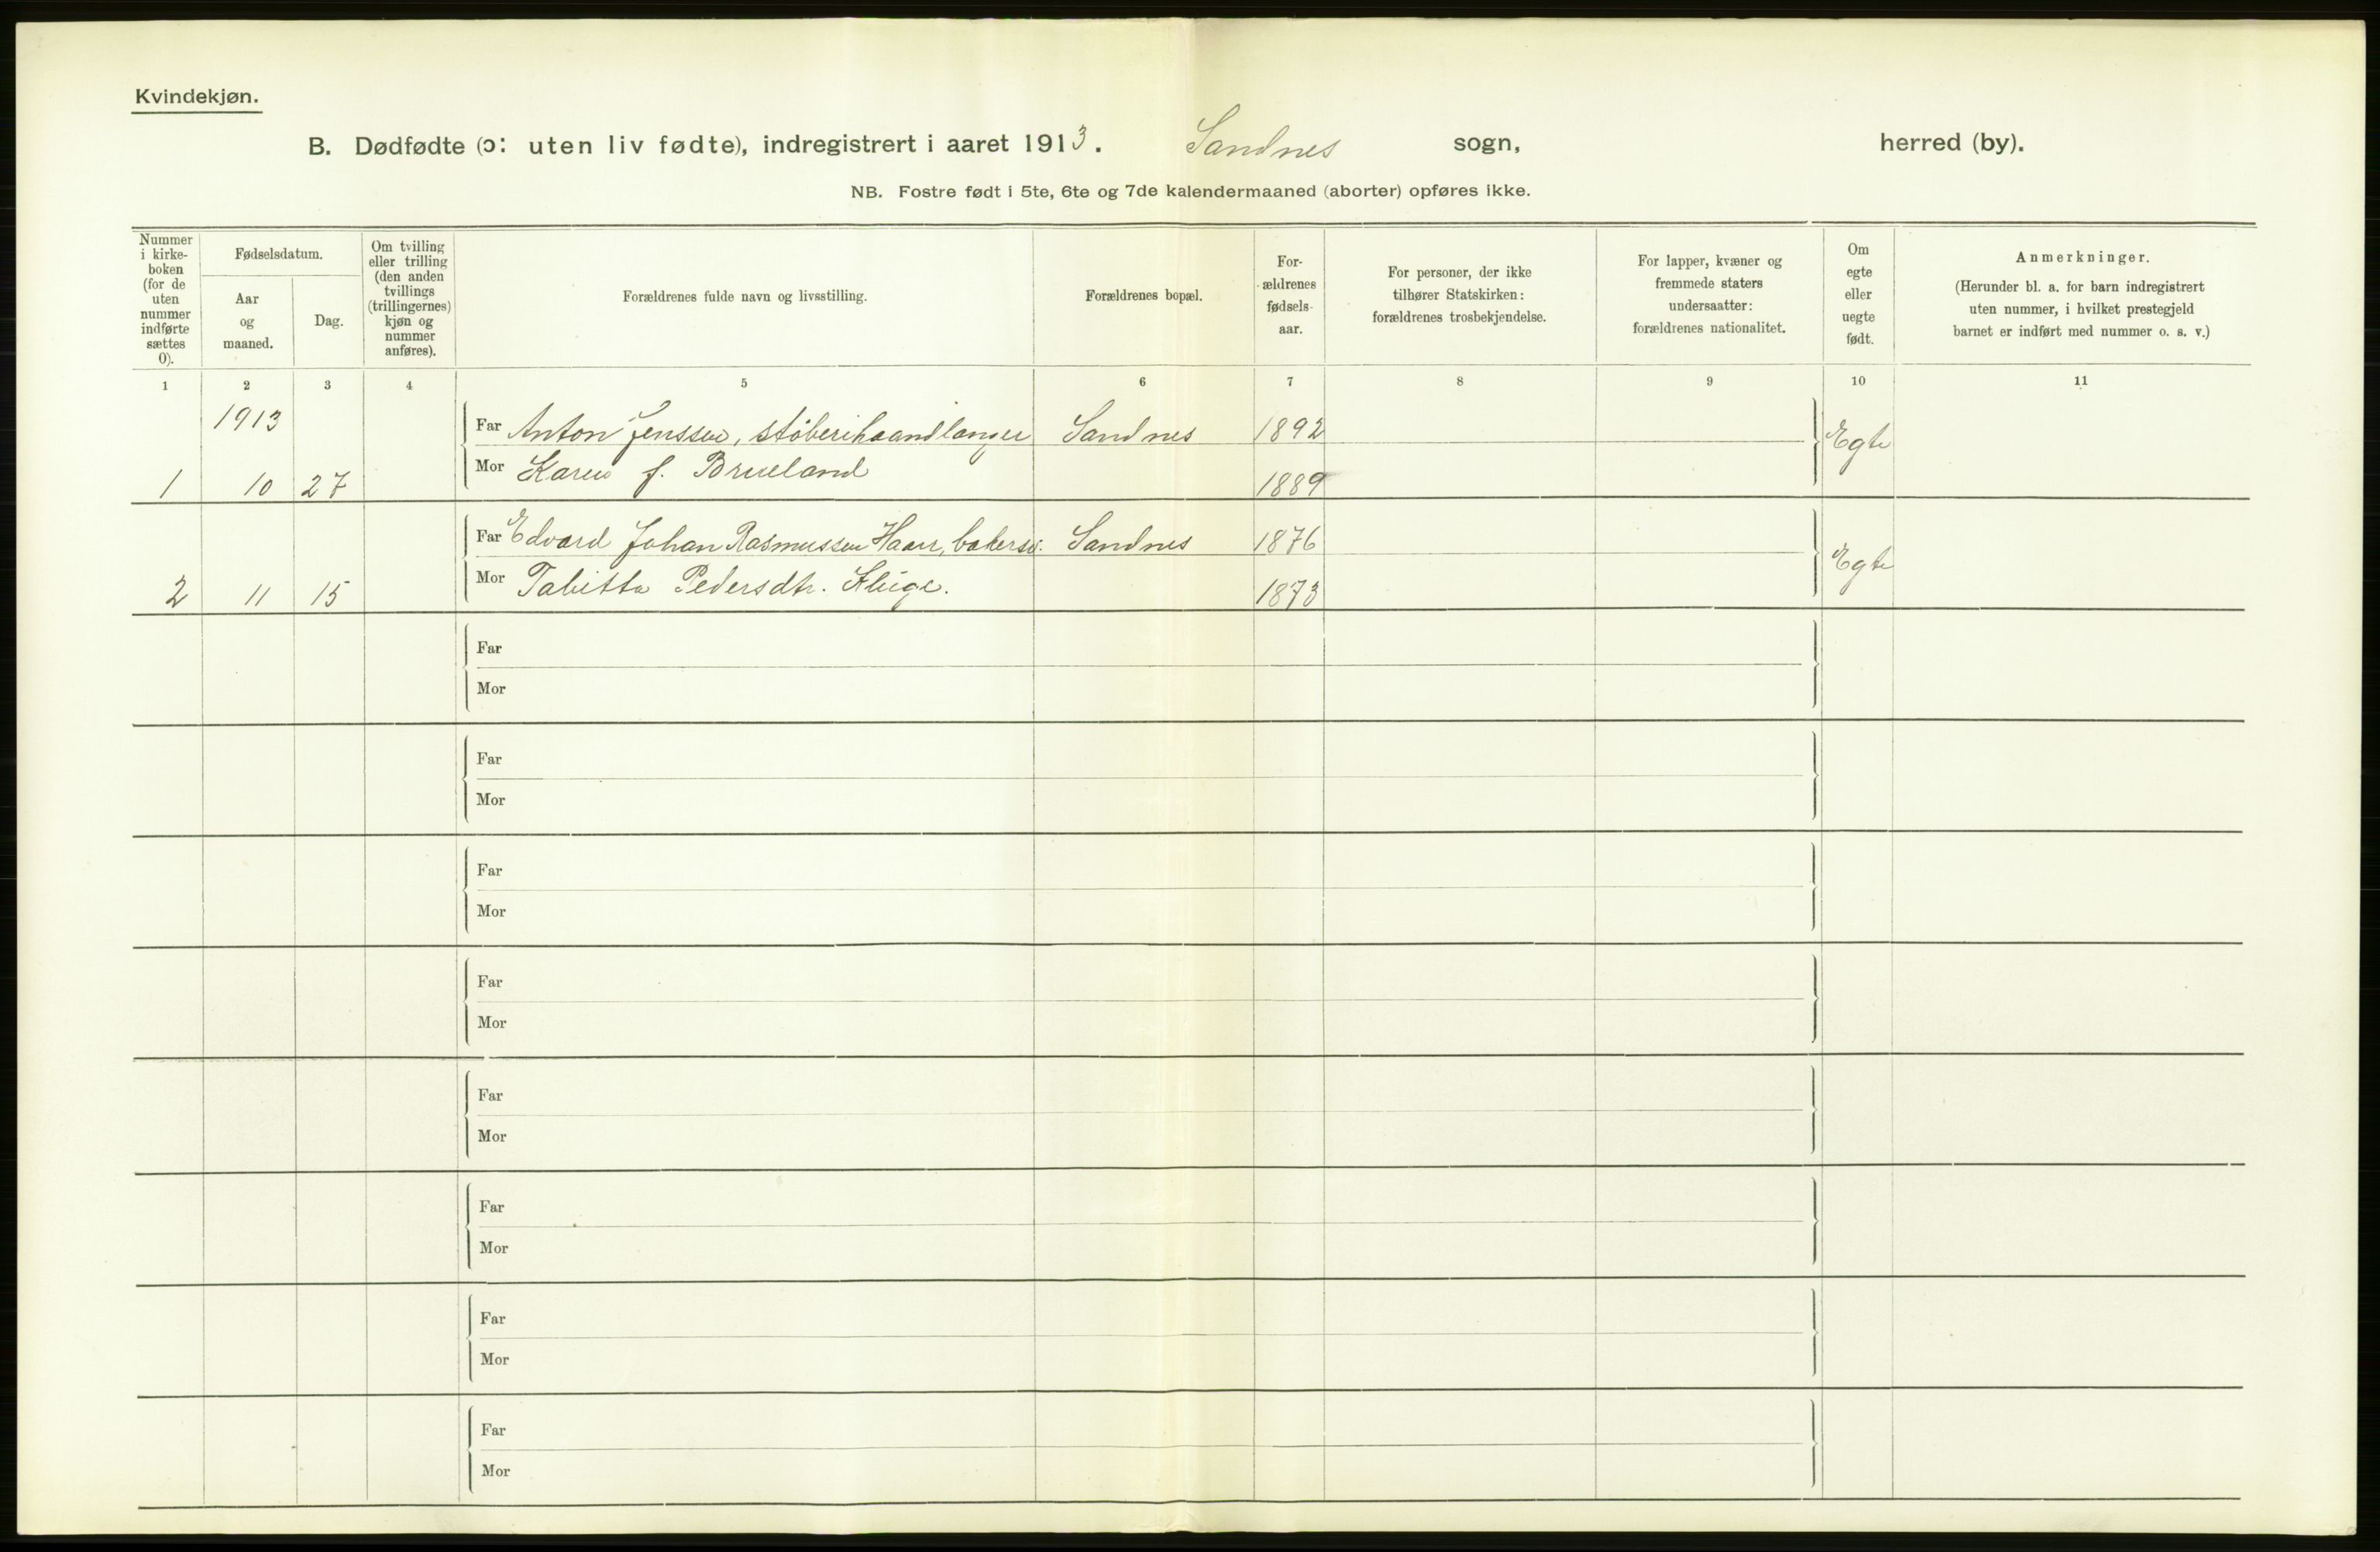 Kvindekjøn.
B. Dødfødte (ɔ: uten liv fødte), indregistrert i aaret 1913. Sandnes sogn, herred (by).
NB. Fostre født i 5te, 6te og 7de kalendermaaned (aborter) opføres ikke.
Nummer
i kirke-
boken
(for de
uten
nummer
indførte
sættes
0).
Fødselsdatum.
Aar
og
maaned.
Dag.
Om tvilling
eller trilling
(den anden
tvillings
(trillingernes)
kjøn og
nummer
anføres).
Forældrenes fulde navn og livsstilling.
Forældrenes bopæl.
For-
ældrenes
fødsels-
aar.
For personer, der ikke
tilhører Statskirken:
forældrenes trosbekjendelse.
For lapper, kvæner og
fremmede staters
undersaatter:
forældrenes nationalitet.
Om
egte
eller
uegte
født.
Anmerkninger.
(Herunder bl. a. for barn indregistrert
uten nummer, i hvilket prestegjeld
barnet er indført med nummer o. s. v.)
1 2 3 4 5 6 7 8 9 10 11
1913
Far Anton Jenssen, støberihaandlanger Sandnes 1892 Egte
1 10 27 Mor Karen f. Brueland 1889
Far Edvard Johan Rasmussen Haarr, bakersv. Sandnes 1876 Egte
2 11 15 Mor Tabitta Pedersdtr. Kluge. 1873
Far
Mor
Far
Mor
Far
Mor
Far
Mor
Far
Mor
Far
Mor
Far
Mor
Far
Mor